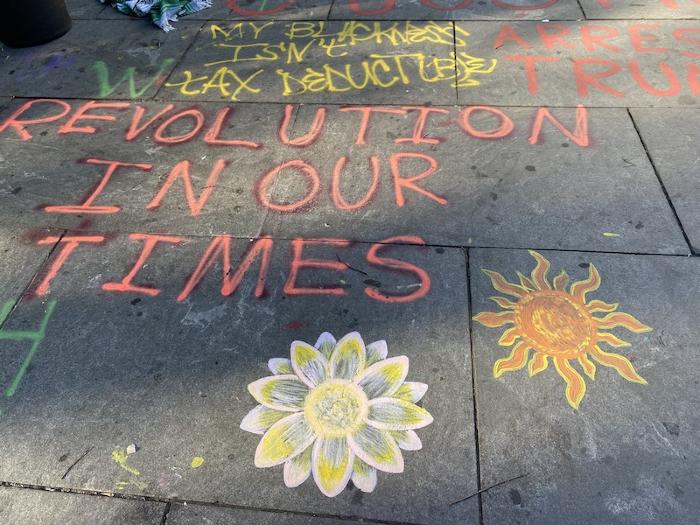 MY BLACKNESS
ISN'T
TAX DEDUCTIBLE
ARRES
TRU
W
REVOLUTION
IN OUR
TIMES
H